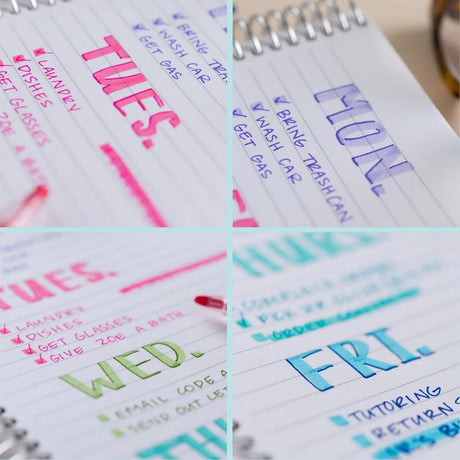 TUES.
LAUNDRY
DISHES
GET GLASSES
ZOE A BATH
BRING
WASH CAR
GET GAS
MON.
BRING TRASHCAN
WASH CAR
GET GAS
TUES.
LAUNDRY
DISHES
GET GLASSES
GIVE ZOE A BATH
WED.
EMAIL CODE
SEND OUT
TH
HURS
COMPLETE
ORDER
FRI.
TUTORING
RETURN